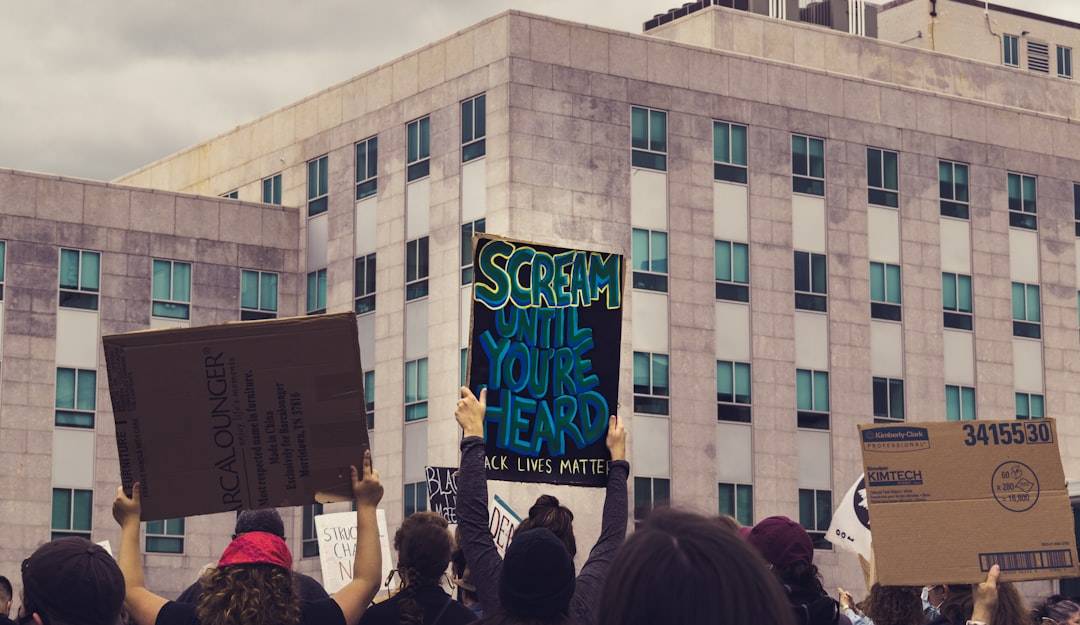 SCREAM
UNTIL
YOU'RE
HEARD
ACK LIVES MATTE
ARCALOUNGER®
enjoy life's moments
Most respected name in furniture.
Made in China
Exclusively for Barcalounger
Morristown, TN 37816
BLAC
STRUC
CHA
N
Kimberly-Clark
PROFESSIONAL
34155 30
KIMTECH
60
x 280
= 16,800